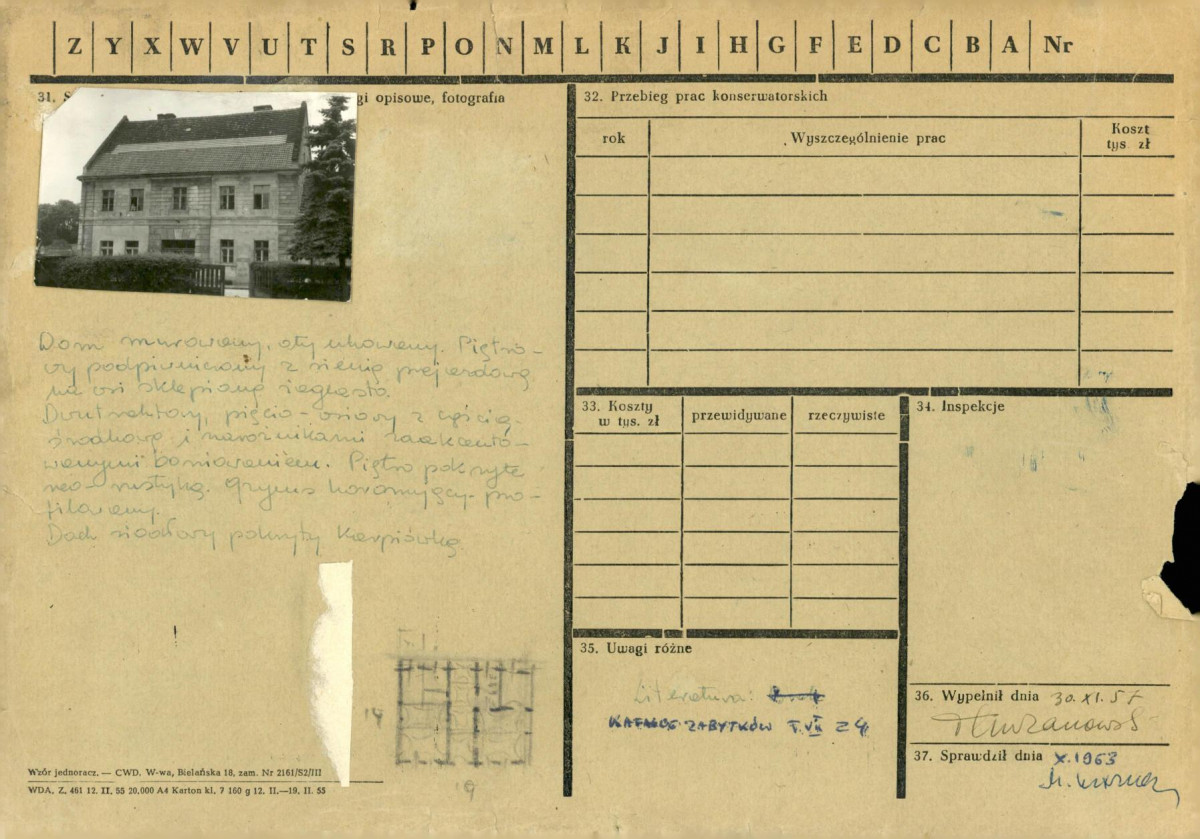 Z Y X W V U T S R P O N M L K J I H G F E D C B A Nr
31. S gi opisowe, fotografia
Dom murowany, otynkowany. Piętro-
wy podpiwniczony z sienią przejezdową
na osi sklepioną żaglasto.
Dwutraktowy, pięcio-osiowy z częścią
środkową i narożnikami zaakcento-
wanymi boniowaniem. Piętro pokryte
neo-rustyką. Gzyms koronujący pro-
filowany.
Dach siodłowy pokryty karpiówką
14
19
Wzór jednoracz. — CWD. W-wa, Bielańska 18, zam. Nr 2161/S2/III
WDA. Z. 461 12. II. 55 20.000 A4 Karton kl. 7 160 g 12. II.—19. II. 55
32. Przebieg prac konserwatorskich
rok Wyszczególnienie prac Koszt
tys. zł
33. Koszty
w tys. zł przewidywane rzeczywiste
34. Inspekcje
35. Uwagi różne
Literatura:
KATALOG ZABYTKÓW T. VII z 4
36. Wypełnił dnia 30.XI.57
37. Sprawdził dnia X.1963